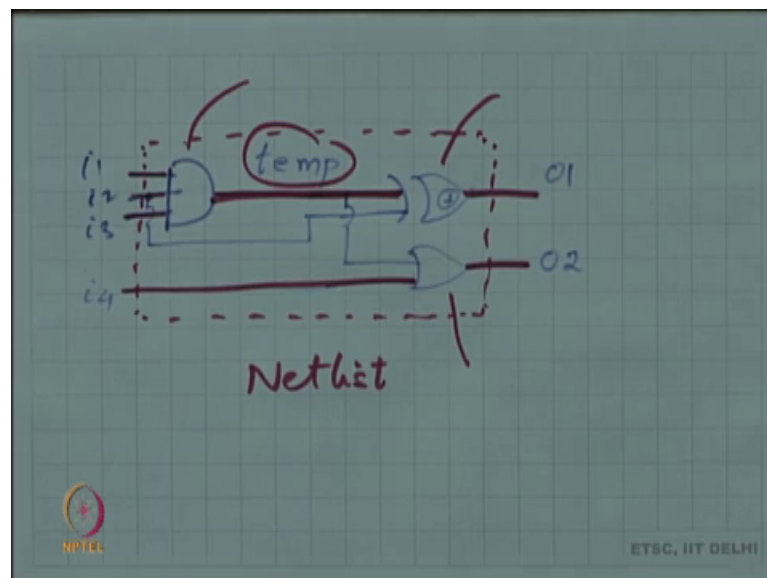 i1
i2
i3
i4
temp
+
01
02
Netlist
NPTEL
ETSC, IIT DELHI